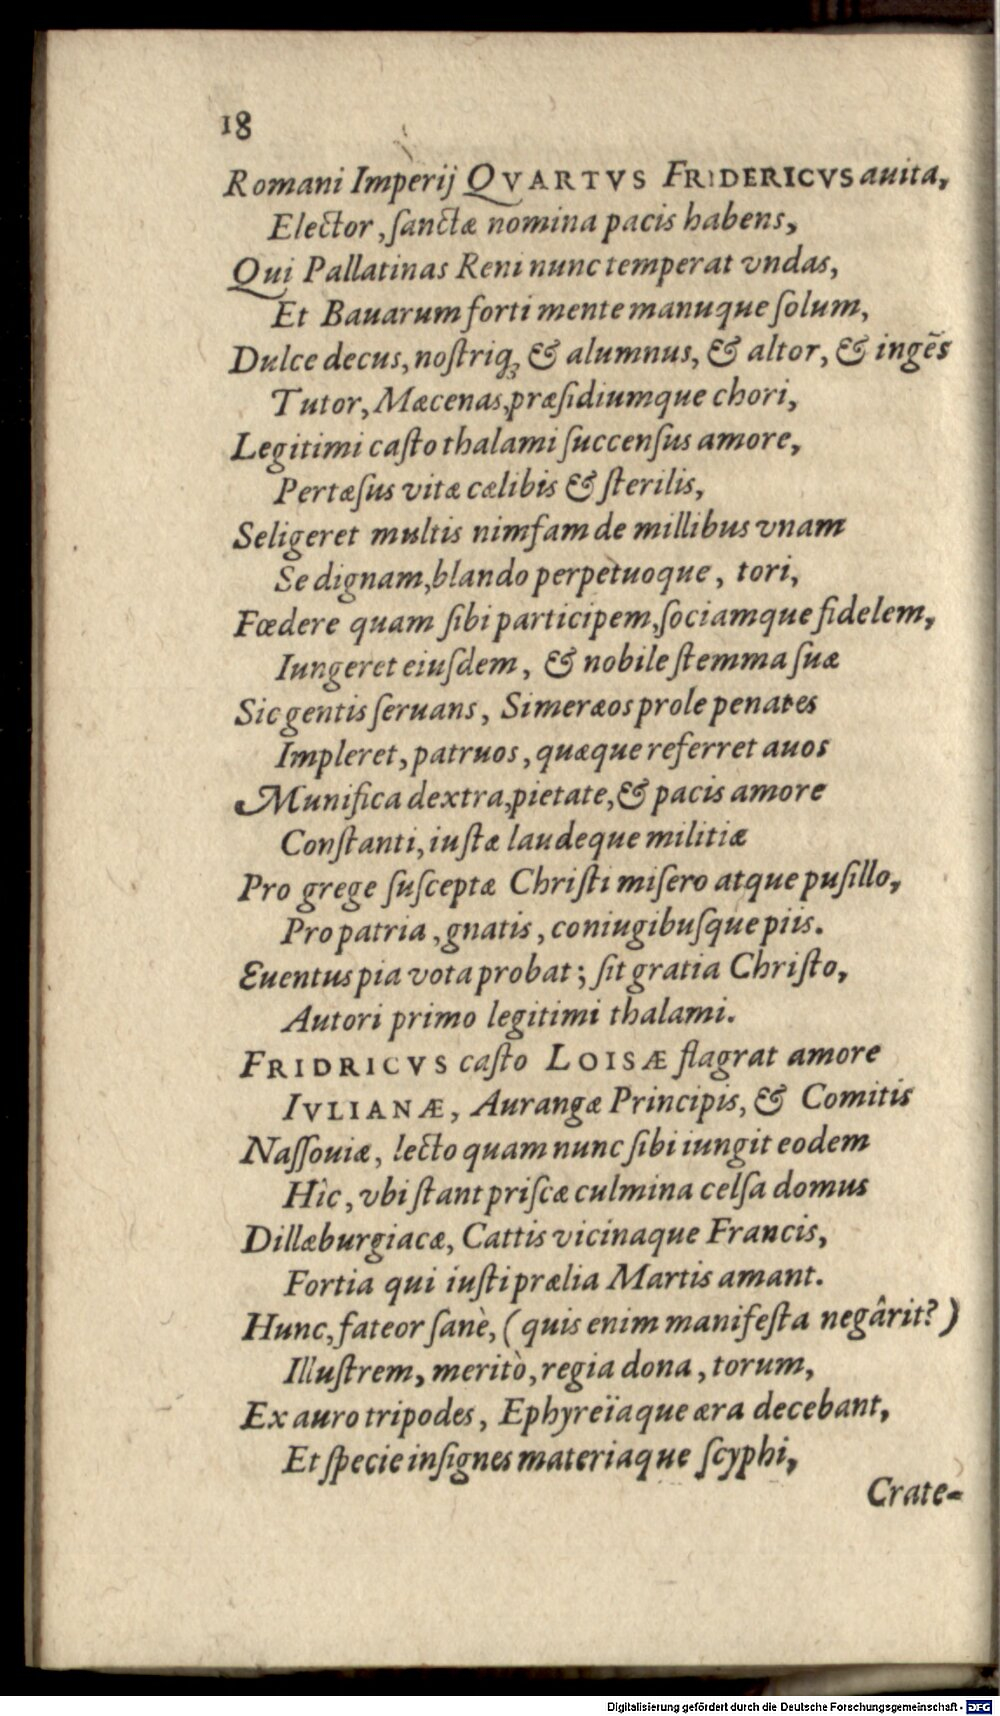 18
Romani Imperij QVARTVS FRIDERICVS auita,
Elector, ſanctæ nomina pacis habens,
Qui Pallatinas Reni nunc temperat vndas,
Et Bauarum forti mente manuque ſolum,
Dulce decus, noſtriq́ꝫ & alumnus, & altor, & ingẽs
Tutor, Mæcenas, præſidiumque chori,
Legitimi caſto thalami ſuccenſus amore,
Pertæſus vitæ cælibis & ſterilis,
Seligeret multis nimfam de millibus vnam
Se dignam, blando perpetuoque, tori,
Fœdere quam ſibi participem, ſociamque fidelem,
Iungeret eiuſdem, & nobile ſtemma ſuæ
Sic gentis ſeruans, Simeræos prole penates
Impleret, patruos, quæque referret auos
Munifica dextra, pietate, & pacis amore
Conſtanti, iuſtæ laudeque militiæ
Pro grege ſuſceptæ Chriſti miſero atque puſillo,
Pro patria, gnatis, coniugibuſque piis.
Euentus pia vota probat; ſit gratia Chriſto,
Autori primo legitimi thalami.
FRIDRICVS caſto LOISÆ flagrat amore
IVLIANÆ, Aurangæ Principis, & Comitis
Naſſouiæ, lecto quam nunc ſibi iungit eodem
Hìc, vbi ſtant priſcæ culmina celſa domus
Dillæburgiacæ, Cattis vicinaque Francis,
Fortia qui iuſti prælia Martis amant.
Hunc, fateor ſanè, (quis enim manifeſta negârit?)
Illuſtrem, meritò, regia dona, torum,
Ex auro tripodes, Ephyreïaque æra decebant,
Et ſpecie inſignes materiaque ſcyphi,
Crate-
Digitalisierung gefördert durch die Deutsche Forschungsgemeinschaft - DFG